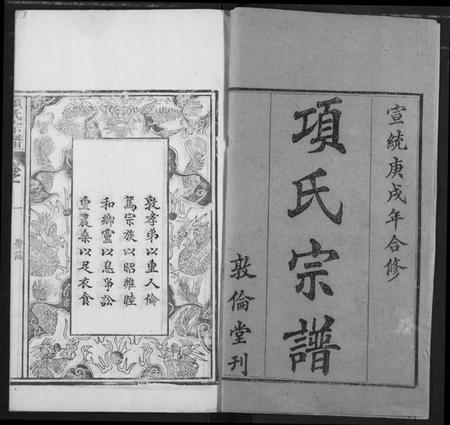 宣統庚戌年合修
項氏宗譜
敦倫堂刊
敦孝弟以重人倫
篤宗族以昭雍睦
和鄉黨以息爭訟
重農桑以足衣食
項氏宗譜
卷一
一